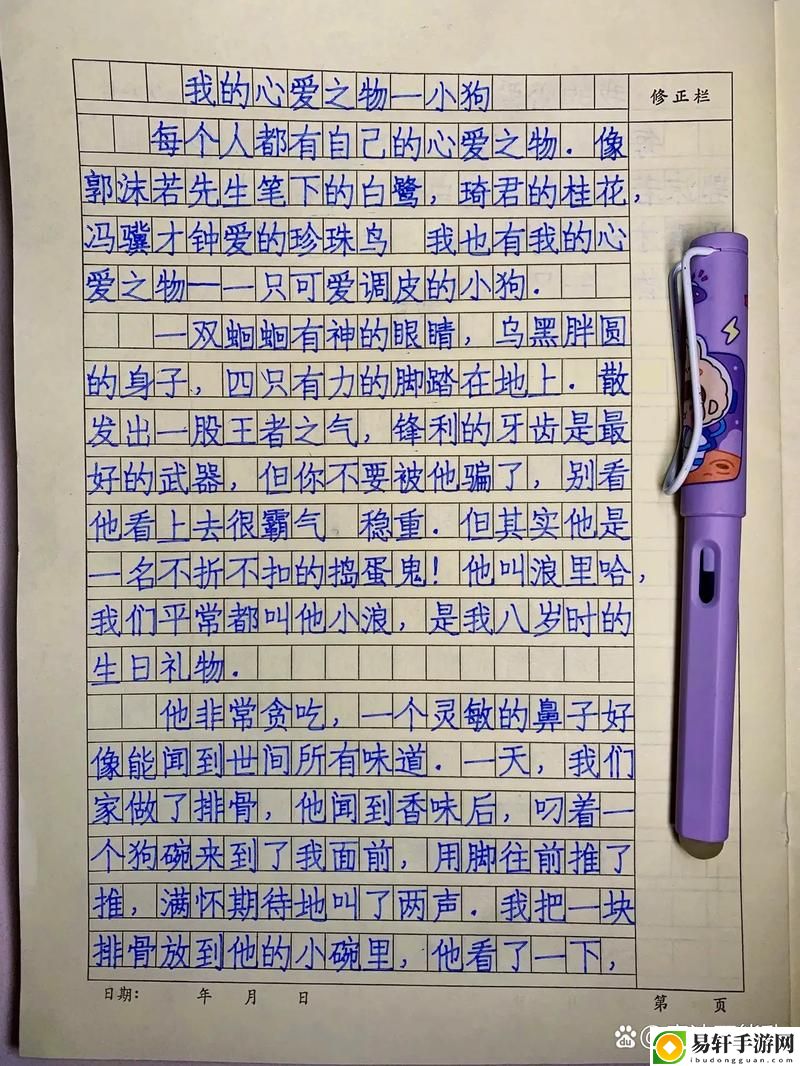 我的心爱之物一小狗
修正栏
每个人都有自己的心爱之物.像
郭沫若先生笔下的白鹭,琦君的桂花,
冯骥才钟爱的珍珠鸟 我也有我的心
爱之物一一只可爱调皮的小狗.
一双蛔蛔有神的眼睛,乌黑胖圆
的身子,四只有力的脚踏在地上.散
发出一股王者之气,锋利的牙齿是最
好的武器,但你不要被他骗了,别看
他看上去很霸气 稳重.但其实他是
一名不折不扣的捣蛋鬼!他叫浪里哈,
我们平常都叫他小浪,是我八岁时的
生日礼物.
他非常贪吃,一个灵敏的鼻子好
像能闻到世间所有味道.一天,我们
家做了排骨,他闻到香味后,叼着一
个狗碗来到了我面前,用脚往前推了
推,满怀期待地叫了两声.我把一块
排骨放到他的小碗里,他看了一下,
日期: 年 月 日
第 页
du
易轩手游网
ibudongguan.com